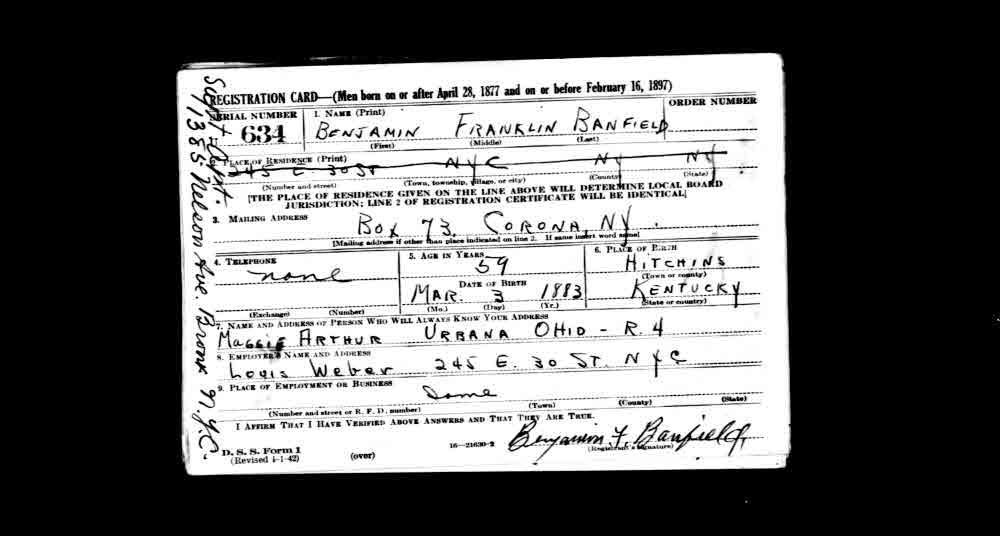 REGISTRATION CARD—(Men born on or after April 28, 1877 and on or before February 16, 1897)
SERIAL NUMBER
634
1. NAME (Print)
BENJAMIN FRANKLIN BANFIELD
(First) (Middle) (Last)
ORDER NUMBER
2. PLACE OF RESIDENCE (Print)
245 E 30 ST NYC NY NY
(Number and street) (Town, township, village, or city) (County) (State)
[THE PLACE OF RESIDENCE GIVEN ON THE LINE ABOVE WILL DETERMINE LOCAL BOARD
JURISDICTION; LINE 2 OF REGISTRATION CERTIFICATE WILL BE IDENTICAL]
3. MAILING ADDRESS
BOX 73, CORONA, NY.
[Mailing address if other than place indicated on line 2. If same insert word same]
4. TELEPHONE
none
(Exchange) (Number)
5. AGE IN YEARS
59
DATE OF BIRTH
MAR. 3 1883
(Mo.) (Day) (Yr.)
6. PLACE OF BIRTH
HITCHINS
(Town or county)
KENTUCKY
(State or country)
7. NAME AND ADDRESS OF PERSON WHO WILL ALWAYS KNOW YOUR ADDRESS
MAGGIE ARTHUR URBANA OHIO - R. 4
8. EMPLOYER'S NAME AND ADDRESS
Louis Weber 245 E. 30 ST. NYC
9. PLACE OF EMPLOYMENT OR BUSINESS
Same
(Number and street or R. F. D. number) (Town) (County) (State)
I AFFIRM THAT I HAVE VERIFIED ABOVE ANSWERS AND THAT THEY ARE TRUE.
Benjamin F. Banfield
D. S. S. Form 1
(Revised 4-1-42)
(over)
16—21630-2
(Registrant's signature)
1385 Nelson Ave. Bronx N.Y.C.